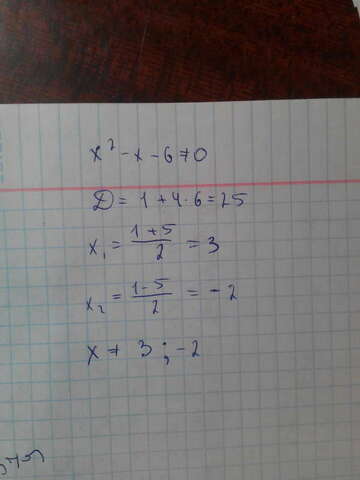 x² - x - 6 ≠ 0
D = 1 + 4·6 = 25
x₁ = (1+5)/2 = 3
x₂ = (1-5)/2 = -2
x ≠ 3 ; -2